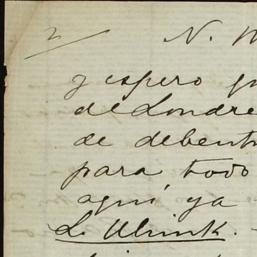 2 N.
y espero
de Londre
de debent
para todo
aqui ya